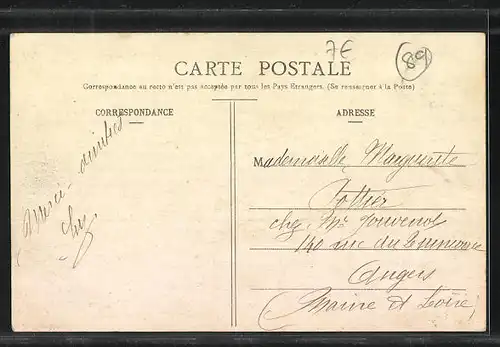 7€
89
CARTE POSTALE
Correspondance au recto n'est pas acceptée par tous les Pays Etrangers. (Se renseigner à la Poste)
CORRESPONDANCE
ADRESSE
Merci
amitiés
Mademoiselle Marguerite
Pottier
chez Mr
140 rue du
Angers
(Maine et Loire)